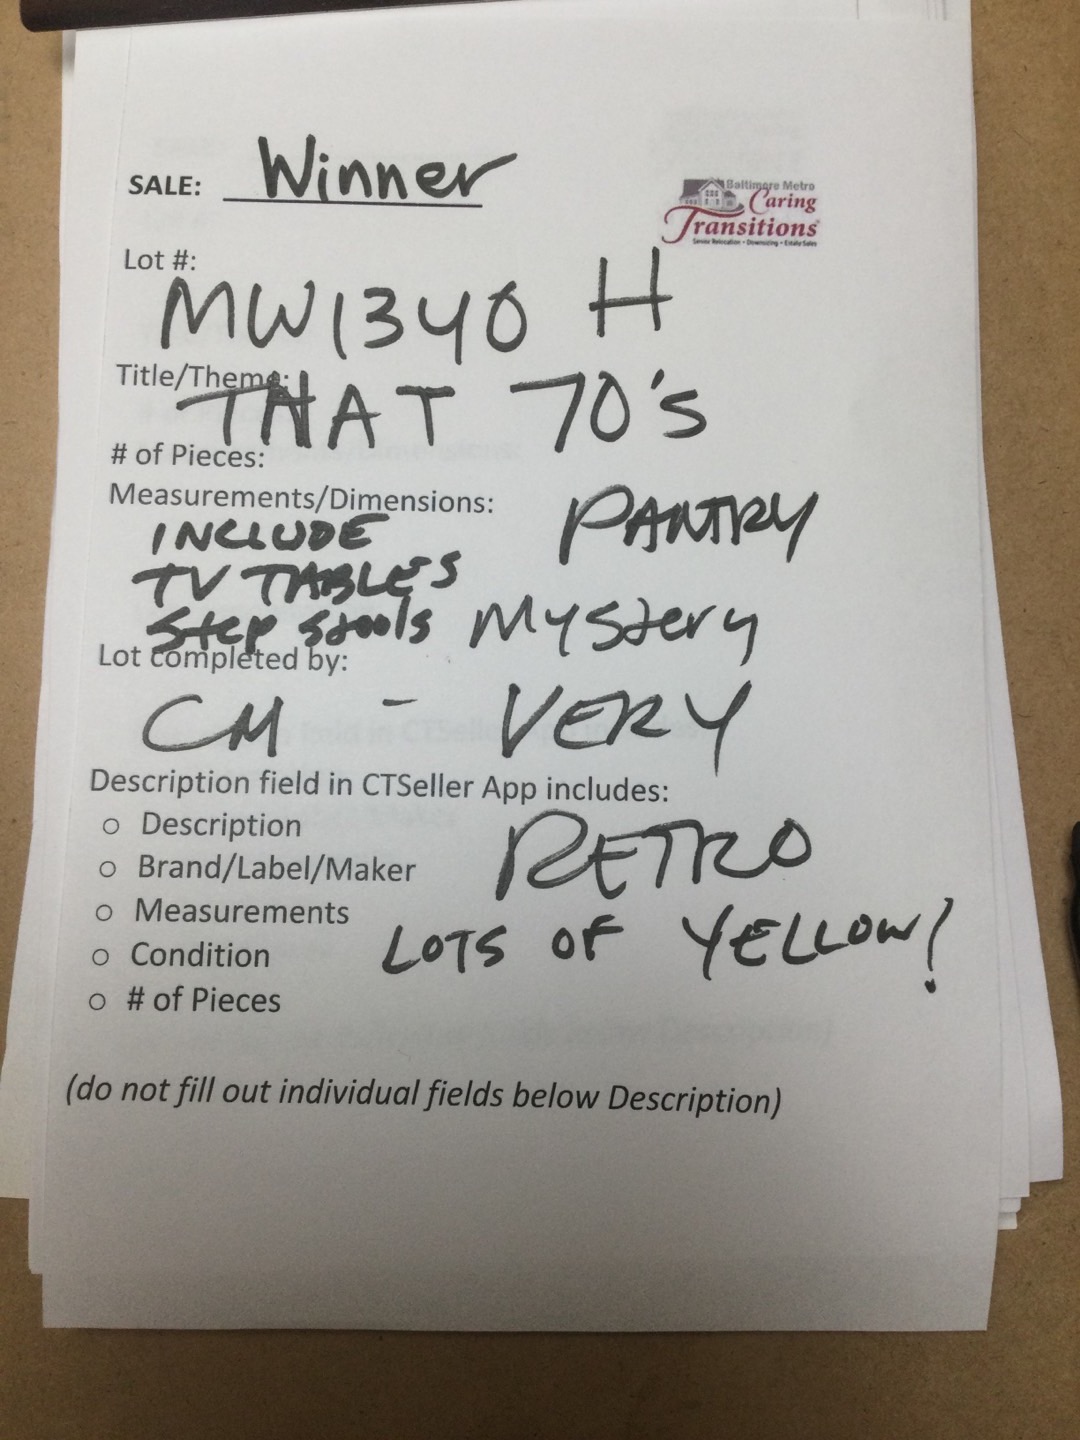 SALE: Winner
Baltimore Metro
Caring
Transitions
Senior Relocation • Downsizing • Estate Sales
Lot #:
MW1340 H
Title/Theme:
THAT 70's
# of Pieces:
Measurements/Dimensions:
PANTRY
INCLUDE
TV TABLES
Step stools
Mystery
Lot completed by:
CM - VERY
Description field in CTSeller App includes:
o Description
RETRO
o Brand/Label/Maker
o Measurements
LOTS OF YELLOW!
o Condition
o # of Pieces
(do not fill out individual fields below Description)